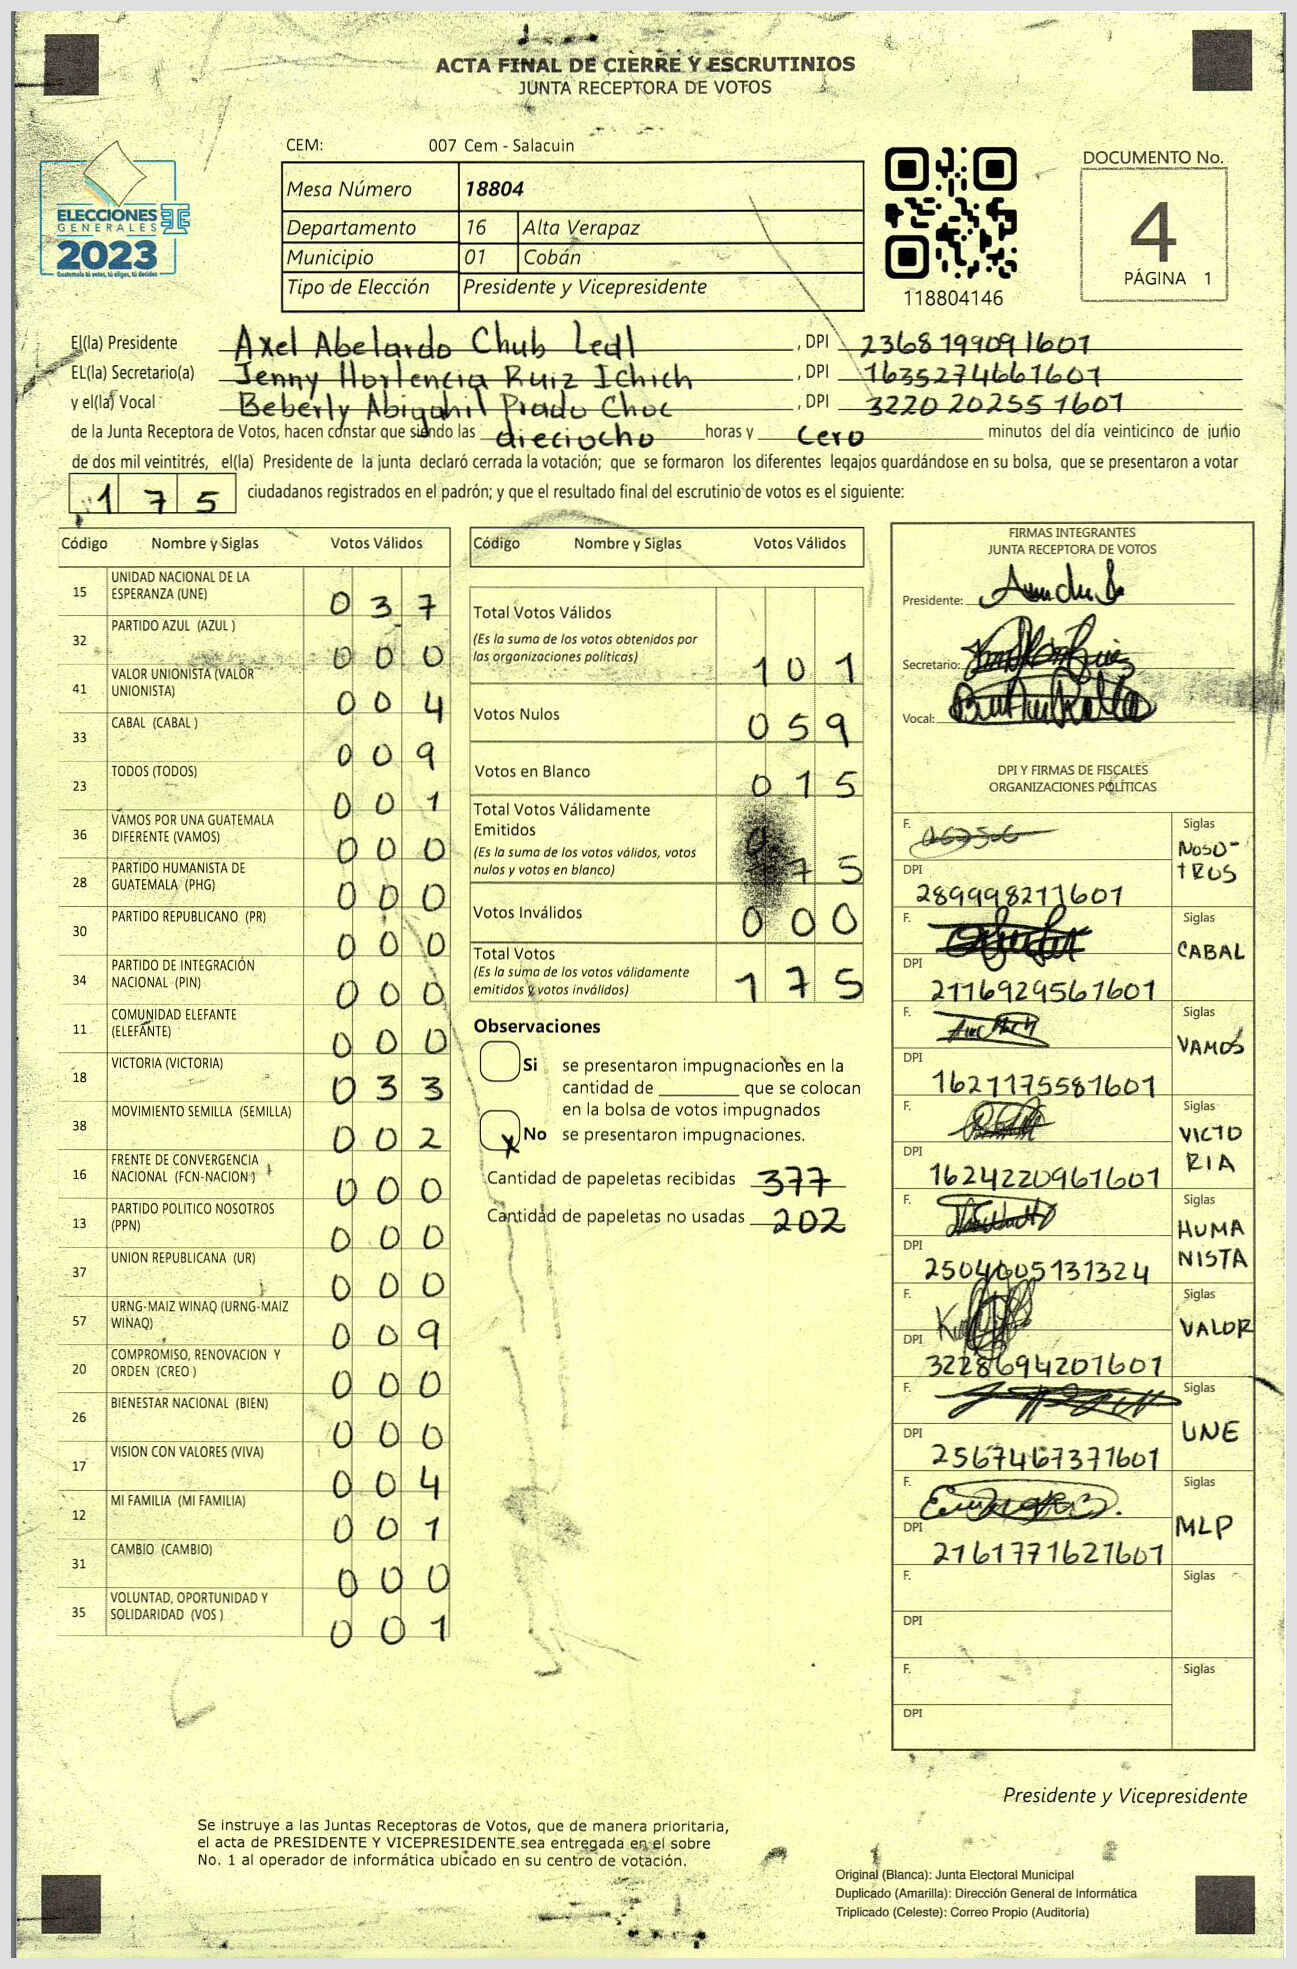 ACTA FINAL DE CIERRE Y ESCRUTINIOS
JUNTA RECEPTORA DE VOTOS
CEM: 007 Cem - Salacuin
Mesa Número 18804
Departamento 16 Alta Verapaz
Municipio 01 Cobán
Tipo de Elección Presidente y Vicepresidente
ELECCIONES
GENERALES
2023
Guatemala tú votas, tú eliges, tú decides
118804146
DOCUMENTO No.
4
PÁGINA 1
El(la) Presidente Axel Abelardo Chub Ledl , DPI 2368199091601
EL(la) Secretario(a) Jenny Hortencia Ruiz Ichich , DPI 1635274661601
y el(la) Vocal Beberly Abigahil Prado Choc , DPI 3220202551601
de la Junta Receptora de Votos, hacen constar que siendo las dieciocho horas y cero minutos del día veinticinco de junio
de dos mil veintitrés, el(la) Presidente de la junta declaró cerrada la votación; que se formaron los diferentes legajos guardándose en su bolsa, que se presentaron a votar
175 ciudadanos registrados en el padrón; y que el resultado final del escrutinio de votos es el siguiente:
Código Nombre y Siglas Votos Válidos
15 UNIDAD NACIONAL DE LA
ESPERANZA (UNE) 037
32 PARTIDO AZUL (AZUL ) 000
41 VALOR UNIONISTA (VALOR
UNIONISTA) 004
33 CABAL (CABAL ) 009
23 TODOS (TODOS) 001
36 VAMOS POR UNA GUATEMALA
DIFERENTE (VAMOS) 000
28 PARTIDO HUMANISTA DE
GUATEMALA (PHG) 000
30 PARTIDO REPUBLICANO (PR) 000
34 PARTIDO DE INTEGRACIÓN
NACIONAL (PIN) 000
11 COMUNIDAD ELEFANTE
(ELEFANTE) 000
18 VICTORIA (VICTORIA) 033
38 MOVIMIENTO SEMILLA (SEMILLA) 002
16 FRENTE DE CONVERGENCIA
NACIONAL (FCN-NACION ) 000
13 PARTIDO POLITICO NOSOTROS
(PPN) 000
37 UNION REPUBLICANA (UR) 000
57 URNG-MAIZ WINAQ (URNG-MAIZ
WINAQ) 009
20 COMPROMISO, RENOVACION Y
ORDEN (CREO ) 000
26 BIENESTAR NACIONAL (BIEN) 000
17 VISION CON VALORES (VIVA) 004
12 MI FAMILIA (MI FAMILIA) 001
31 CAMBIO (CAMBIO) 000
35 VOLUNTAD, OPORTUNIDAD Y
SOLIDARIDAD (VOS ) 001
Código Nombre y Siglas Votos Válidos
Total Votos Válidos
(Es la suma de los votos obtenidos por
las organizaciones políticas) 101
Votos Nulos 059
Votos en Blanco 015
Total Votos Válidamente
Emitidos
(Es la suma de los votos válidos, votos
nulos y votos en blanco) 75
Votos Inválidos 000
Total Votos
(Es la suma de los votos válidamente
emitidos y votos inválidos) 175
Observaciones
Si se presentaron impugnaciones en la
cantidad de ________ que se colocan
en la bolsa de votos impugnados
X No se presentaron impugnaciones.
Cantidad de papeletas recibidas 377
Cantidad de papeletas no usadas 202
FIRMAS INTEGRANTES
JUNTA RECEPTORA DE VOTOS
Presidente:
Secretario:
Vocal:
DPI Y FIRMAS DE FISCALES
ORGANIZACIONES POLÍTICAS
F. Siglas
NOSO-
TROS
DPI
289998211601
F. Siglas
CABAL
DPI
2116929561601
F. Siglas
VAMOS
DPI
1621175581601
F. Siglas
VICTO
RIA
DPI
1624220961601
F. Siglas
HUMA
NISTA
DPI
2504005131324
F. Siglas
VALOR
DPI
3228694201601
F. Siglas
UNE
DPI
2567467371601
F. Siglas
MLP
DPI
2161771621601
F. Siglas
DPI
F. Siglas
DPI
Presidente y Vicepresidente
Se instruye a las Juntas Receptoras de Votos, que de manera prioritaria,
el acta de PRESIDENTE Y VICEPRESIDENTE sea entregada en el sobre
No. 1 al operador de informática ubicado en su centro de votación.
Original (Blanca): Junta Electoral Municipal
Duplicado (Amarilla): Dirección General de Informática
Triplicado (Celeste): Correo Propio (Auditoría)